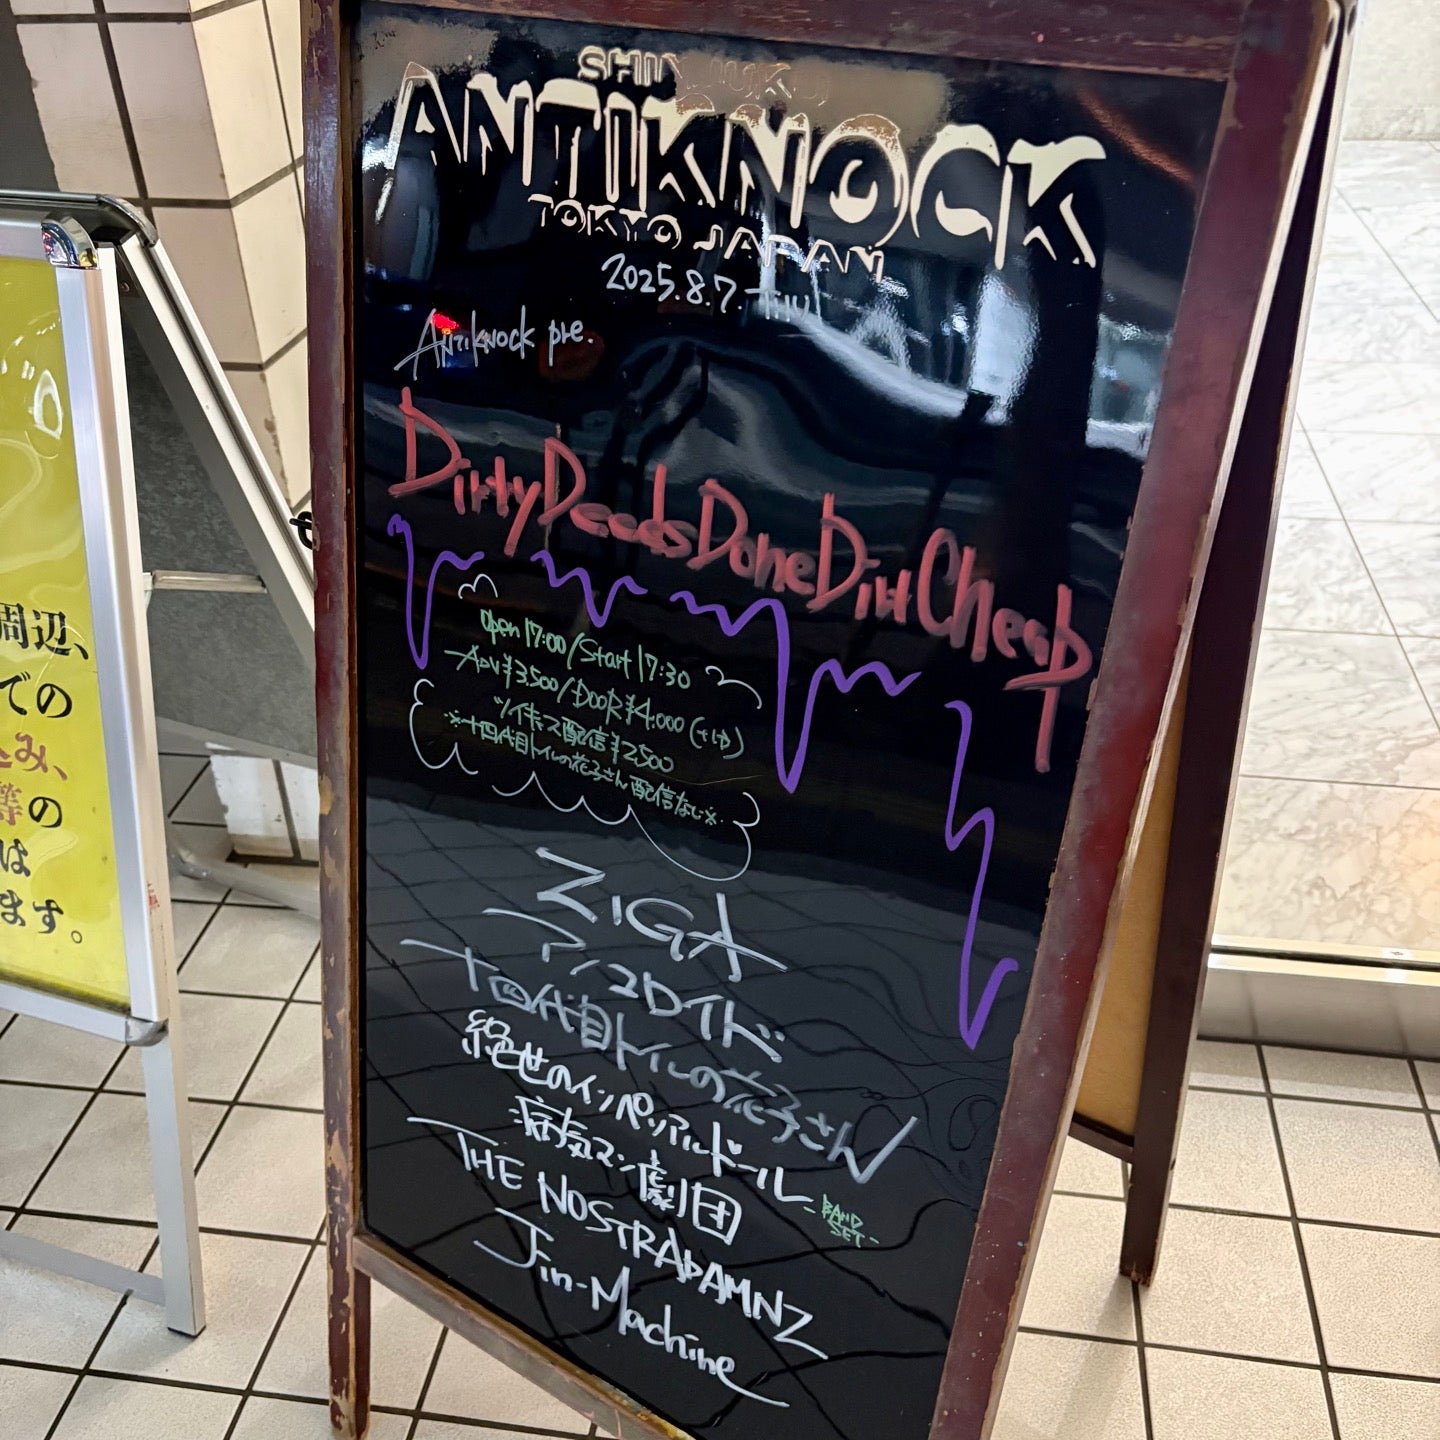 周辺、
での
込み、
等の
は
ます。
SHINJUKU
ANTIKNOCK
TOKYO JAPAN
2025.8.7.Thu
ANTIKNOCK pre.
DirtyDeedsDoneDirtCheap
Open 17:00/Start 17:30
ADV ¥3.500/DOOR ¥4.000(+1D)
ツイキャス配信¥2500
※十四代目トイレの花子さん配信なし※
ZIGA
アンコロイド
十四代目トイレの花子さん
絶世のインペリアルドール
-BAND SET-
病気マン劇団
THE NOSTRADAMNZ
Jin-Machine